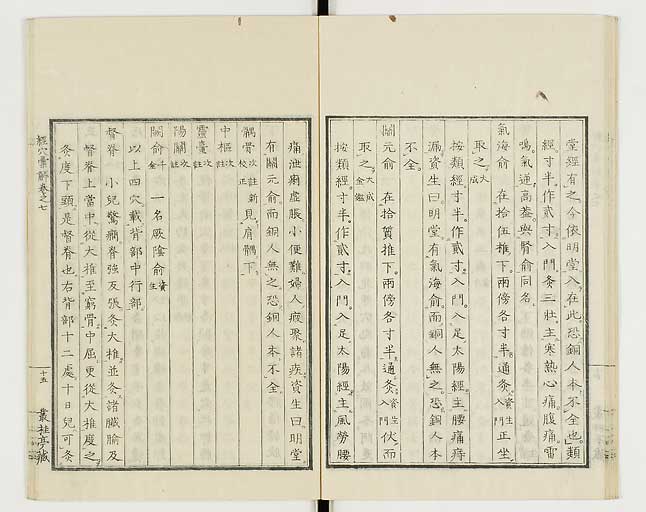 堂經有之今依明堂入在此恐銅人本不全也類
經寸半作貳寸入門灸三壯主寒熱心痛腹痛雷
鳴氣逆高蓋與腎俞同名
氣海俞 在拾伍椎下兩傍各寸半通灸資生入門正坐
取之大成
按類經寸半作貳寸入門入足太陽經主腰痛痔
漏資生曰明堂有氣海俞而銅人無之恐銅人本
不全
關元俞 在拾質椎下兩傍各寸半通灸資生入門伏而
取之大成金鑑
按類經寸半作貳寸入門入足太陽經主風勞腰
痛泄痢虛脹小便難婦人瘕聚諸疾資生曰明堂
有關元俞而銅人無之恐銅人本不全
髃骨次註新校正見肩髃下
中樞次註
靈臺次註
陽關次註
關俞千金 一名厥陰俞資生
以上四穴載背部中行部
督脊 小兒驚癇脊強反張灸大椎並灸諸臟腧及
督脊上當中從大椎至窮骨中屈更從大椎度之
灸度下頭是督脊也右背部十二處十日兒可灸
經穴彙解卷之七
十五
叢桂亭藏